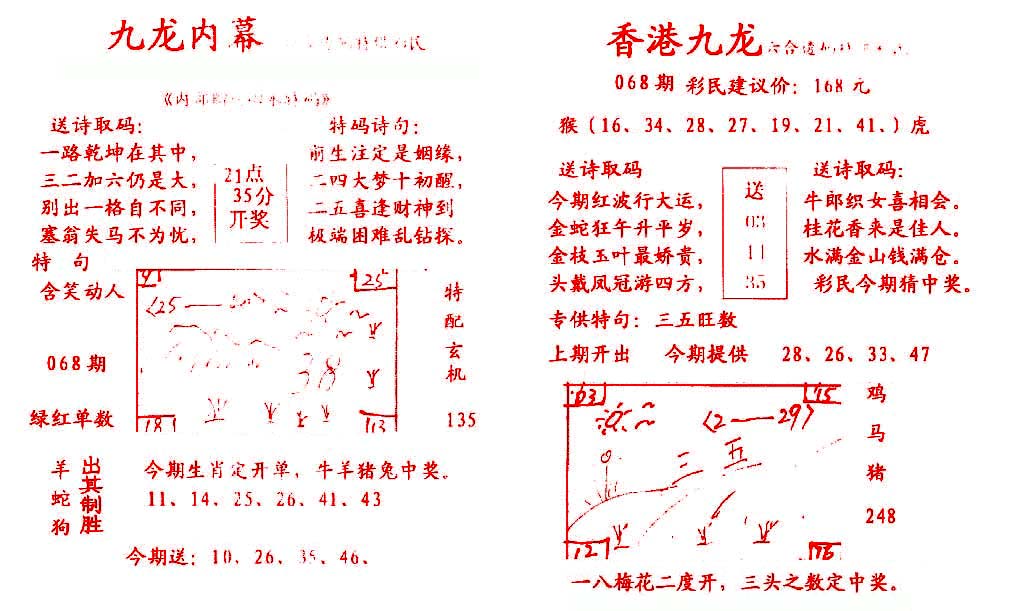 九龙内幕
送诗取码：
一路乾坤在其中，
三二加六仍是大，
别出一格自不同，
塞翁失马不为忧，
特 句
含笑动人
068期
绿红单数
21点
35分
开奖
特码诗句：
前生注定是姻缘，
二四大梦十初醒，
二五喜逢财神到
极端困难乱钻探。
25
〈25——
38
18
13
特
配
玄
机
135
羊
蛇
狗
出其制胜
今期生肖定开单，牛羊猪兔中奖。
11、14、25、26、41、43
今期送：10、26、35、46、
香港九龙
068期 彩民建议价：168元
猴（16、34、28、27、19、21、41、）虎
送诗取码
今期红波行大运，
金蛇狂午升平岁，
金枝玉叶最娇贵，
头戴凤冠游四方，
送
03
11
35
送诗取码：
牛郎织女喜相会。
桂花香来是佳人。
水满金山钱满仓。
彩民今期猜中奖。
专供特句：三五旺数
上期开出 今期提供 28、26、33、47
03
15
〈2——29〉
三五
12
16
鸡
马
猪
248
一八梅花二度开，三头之数定中奖。